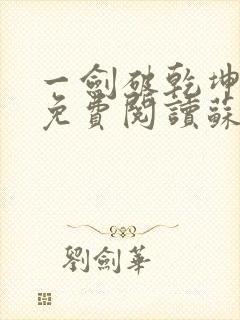 一劍破乾坤
免費閱讀蘇
劉劍華